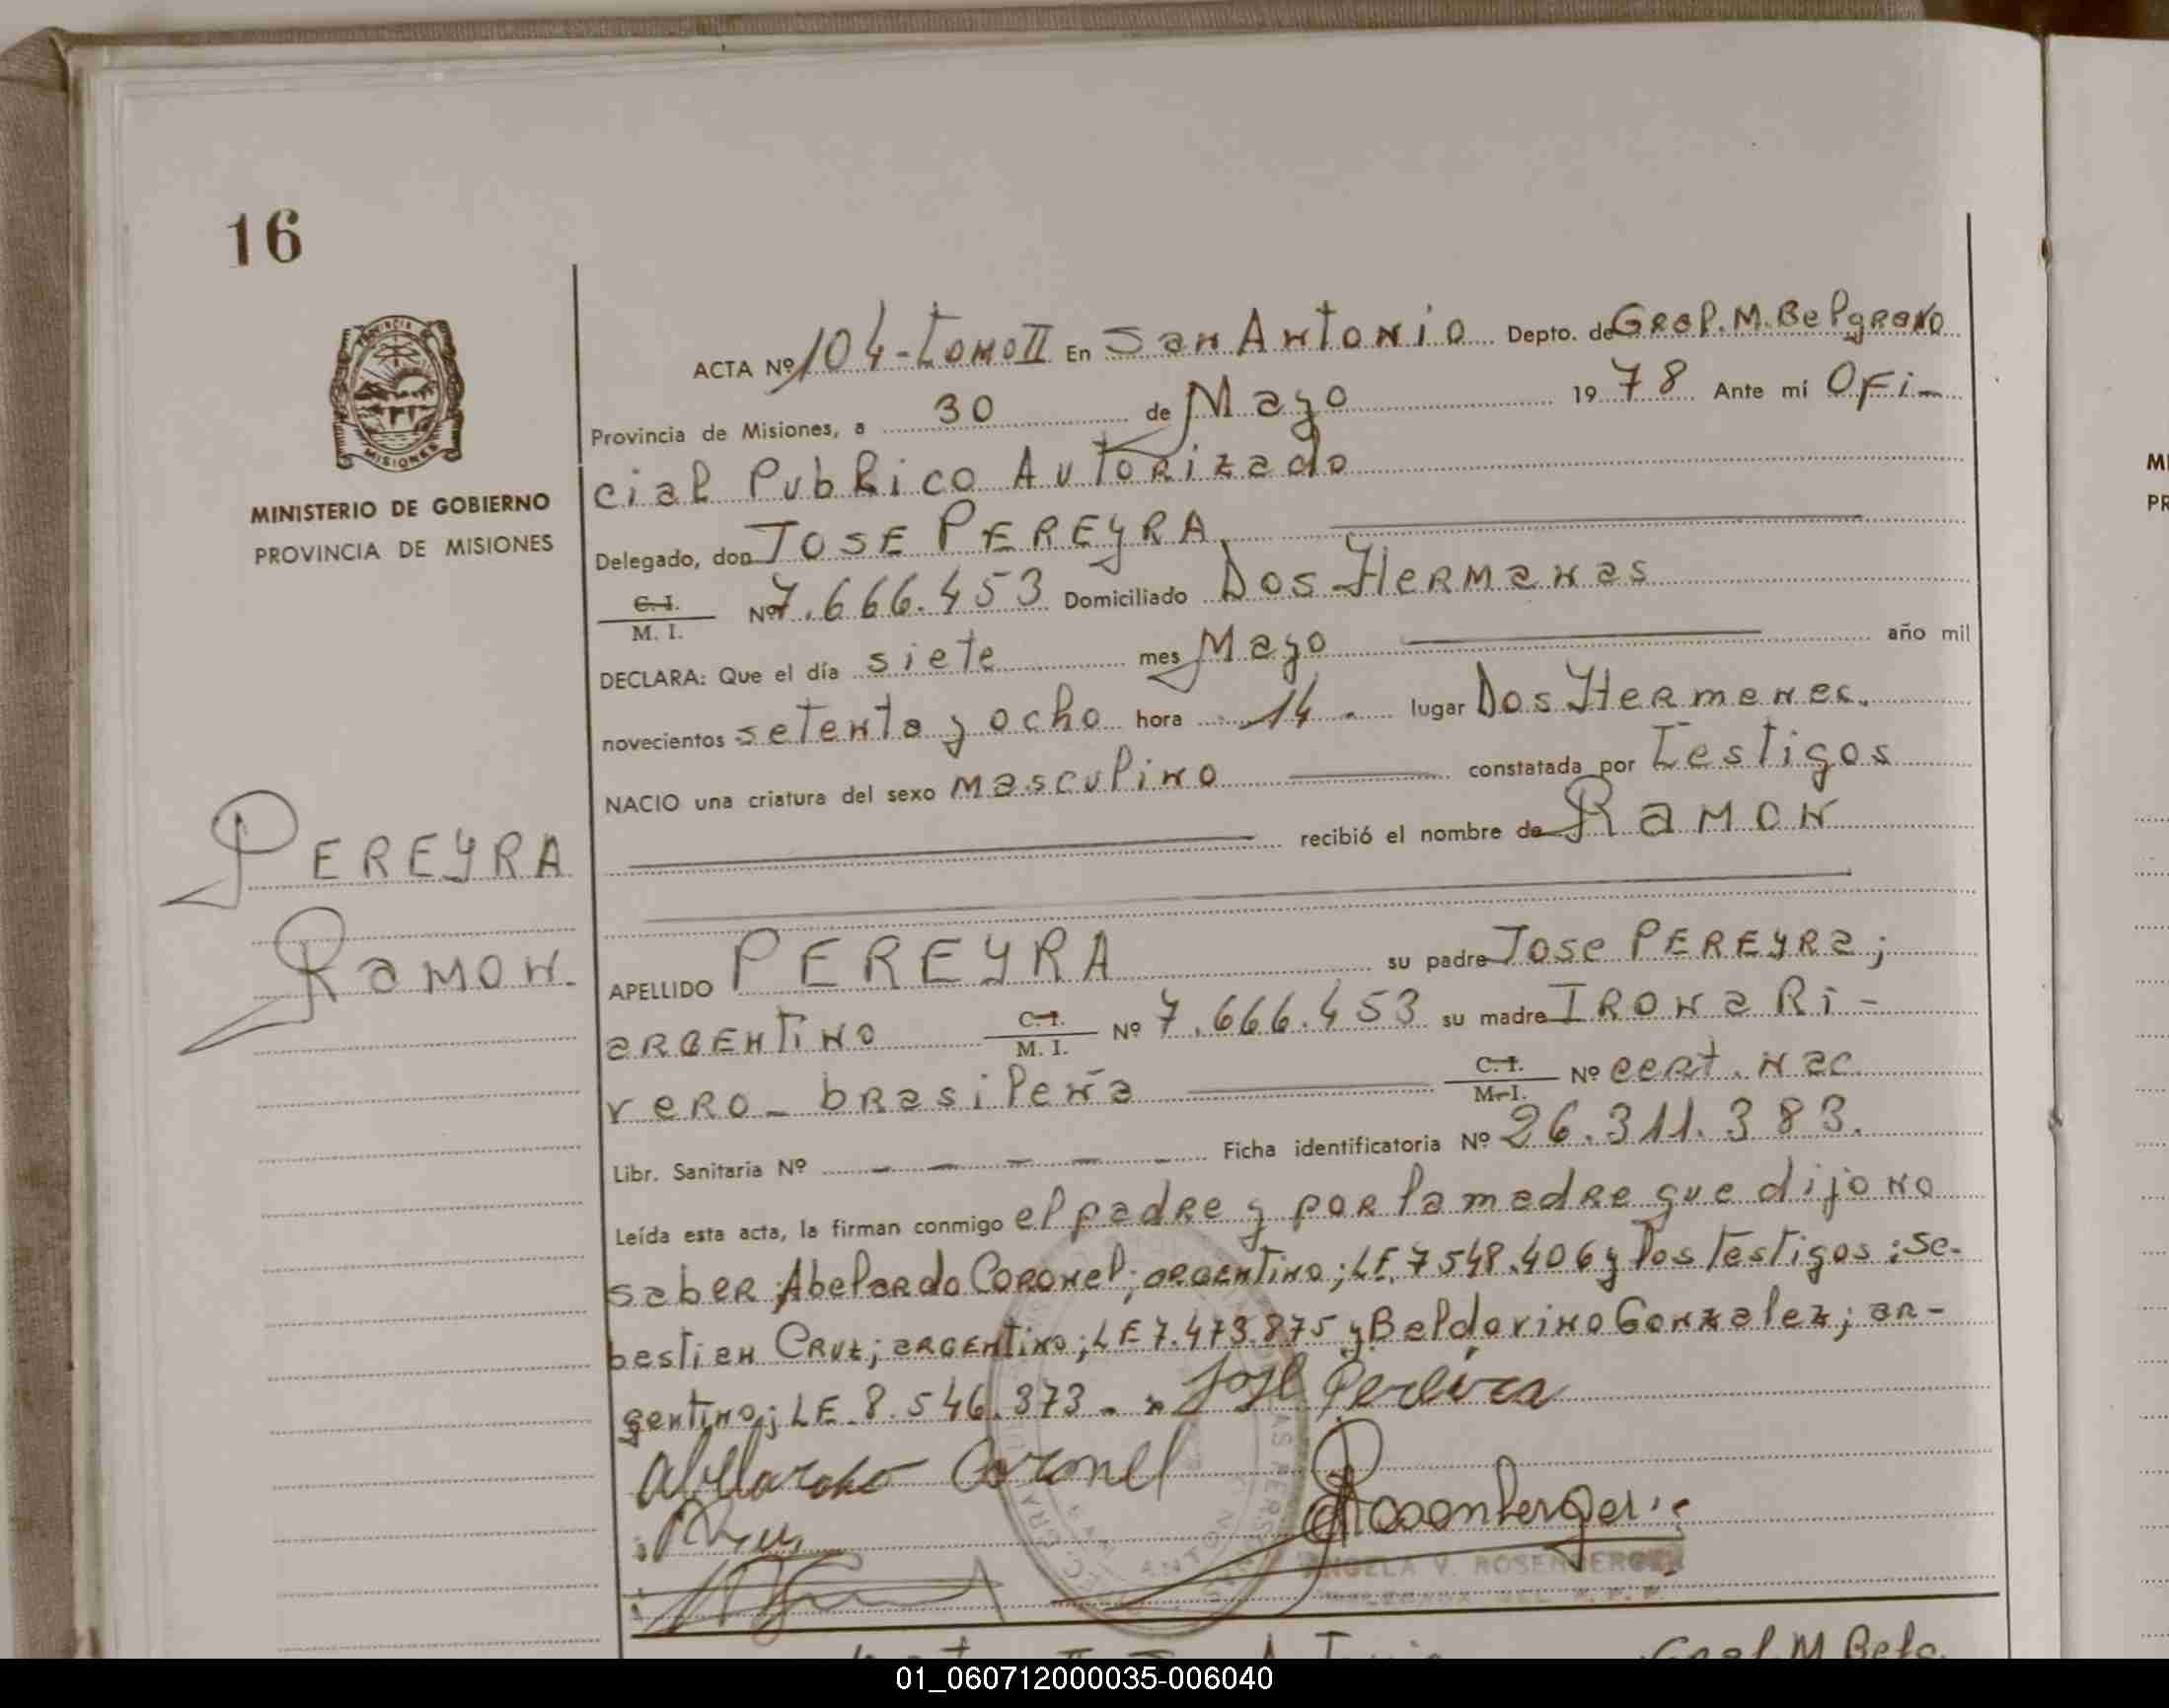 16
PROVINCIA DE
MISIONES
MINISTERIO DE GOBIERNO
PROVINCIA DE MISIONES
PEREYRA
Ramon.
ACTA Nº 104-Tomo II En San Antonio Depto. de Gral. M. Belgrano
Provincia de Misiones, a 30 de Mayo 1978 Ante mí Ofi-
cial Publico Autorizado
Delegado, don JOSE PEREYRA
C. I. / M. I. Nº 7.666.453 Domiciliado Dos Hermanas
DECLARA: Que el día siete mes Mayo año mil
novecientos setenta y ocho hora 14. lugar Dos Hermanas.
NACIO una criatura del sexo masculino constatada por Testigos
recibió el nombre de Ramon
APELLIDO PEREYRA su padre Jose PEREYRA;
argentino C. I. / M. I. Nº 7.666.453 su madre IRONA Ri-
vero - brasileña C. I. / M. I. Nº cert. nac.
Libr. Sanitaria Nº - - - - - Ficha identificatoria Nº 26.311.383.
Leída esta acta, la firman conmigo el padre y por la madre que dijo no
saber; Abelardo Coronel; argentino; LE. 7548.406 y los testigos: Se-
bastian Cruz; argentino; LE 7.473.875 y Baldovino Gonzalez; ar-
gentino; LE. 8.546.373.
José Pereira
Abelardo Coronel
Rosenberger
ANGELA V. ROSENBERGER
Gral. M. Belg.
01_060712000035-006040